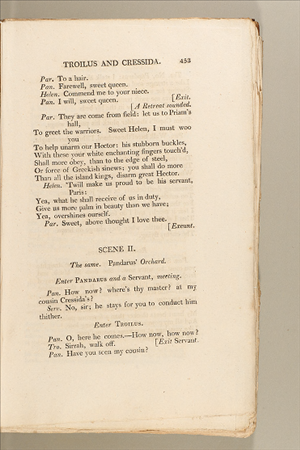 TROILUS AND CRESSIDA. 453
Par. To a hair.
Pan. Farewell, sweet queen.
Helen. Commend me to your niece.
Pan. I will, sweet queen. [Exit.
[A Retreat sounded.
Par. They are come from field: let us to Priam's
hall,
To greet the warriors. Sweet Helen, I must woo
you
To help unarm our Hector: his stubborn buckles,
With these your white enchanting fingers touch'd,
Shall more obey, than to the edge of steel,
Or force of Greekish sinews; you shall do more
Than all the island kings, disarm great Hector.
Helen. 'Twill make us proud to be his servant,
Paris:
Yea, what he shall receive of us in duty,
Give us more palm in beauty than we have;
Yea, overshines ourself.
Par. Sweet, above thought I love thee.
[Exeunt.
SCENE II.
The same. Pandarus' Orchard.
Enter PANDARUS and a Servant, meeting.
Pan. How now? where's thy master? at my
cousin Cressida's?
Serv. No, sir; he stays for you to conduct him
thither.
Enter TROILUS.
Pan. O, here he comes.—How now, how now?
Tro. Sirrah, walk off. [Exit Servant.
Pan. Have you seen my cousin?